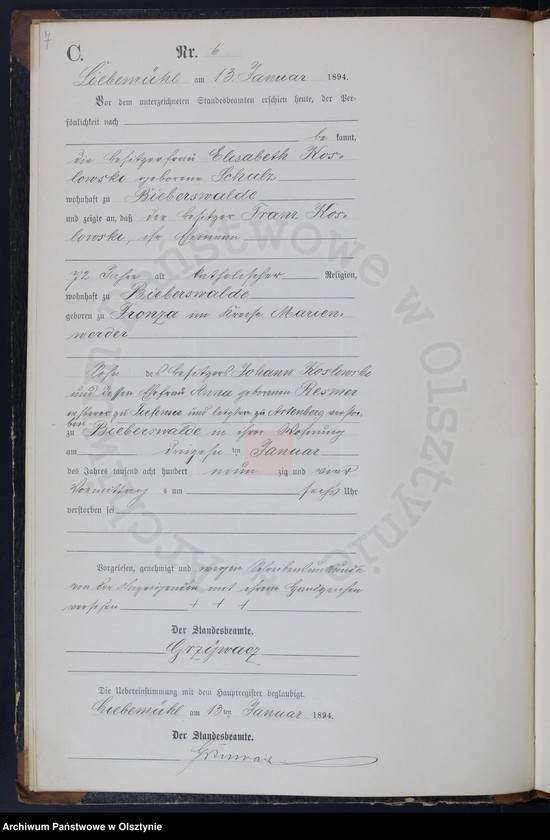 7
C.
Nr. 6
Liebemühl am 13 Januar 1894.
Vor dem unterzeichneten Standesbeamten erschien heute, der Per-
sönlichkeit nach
be kannt,
die Besitzerfrau Elisabeth Kos-
lowski geborene Schulz
wohnhaft zu Bieberswalde
und zeigte an, daß der Besitzer Franz Kos-
lowski, ihr Ehemann
72 Jahre alt katholischer Religion,
wohnhaft zu Bieberswalde
geboren zu Tronza im Kreise Marien-
werder
Sohn des Besitzers Johann Koslowski
und dessen Ehefrau Anna geborenen Resmer
ersterer zu und letztere zu verstor-
ben
zu Bieberswalde in ihrer Wohnung
am ten Januar
des Jahres tausend acht hundert neun zig und vier
Vormittag s um sechs Uhr
verstorben sei
Vorgelesen, genehmigt und wegen Schreibensunkunde
von der Anzeigenden mit ihrem Handzeichen
versehen + + +
Der Standesbeamte.
Grzywacz
Die Uebereinstimmung mit dem Hauptregister beglaubigt.
Liebemühl am 13ten Januar 1894.
Der Standesbeamte.
Archiwum Państwowe w Olsztynie
Archiwum Państwowe w Olsztynie